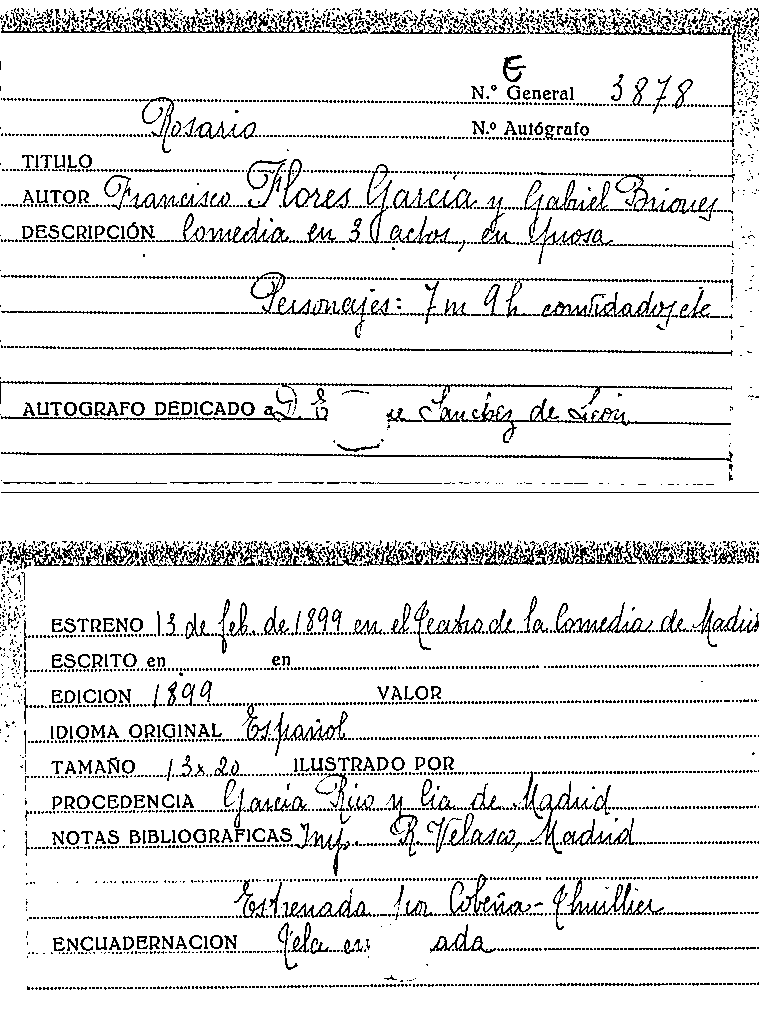 E
N.º General 3878
Rosario
N.º Autógrafo
TITULO
AUTOR Francisco Flores García y Gabriel Briones
DESCRIPCIÓN Comedia en 3 actos, en prosa
Personajes: 7 m 9 h convidados etc
AUTOGRAFO DEDICADO a D. E ue Sanchez de León
ESTRENO 13 de feb. de 1899 en el Teatro de la Comedia de Madrid
ESCRITO en en
EDICION 1899 VALOR
IDIOMA ORIGINAL Español
TAMAÑO 13x20 ILUSTRADO POR
PROCEDENCIA García Rico y Cia de Madrid
NOTAS BIBLIOGRAFICAS Imp. R. Velasco, Madrid
Estrenada por Cobeña-Thuillier
ENCUADERNACION Tela en ada